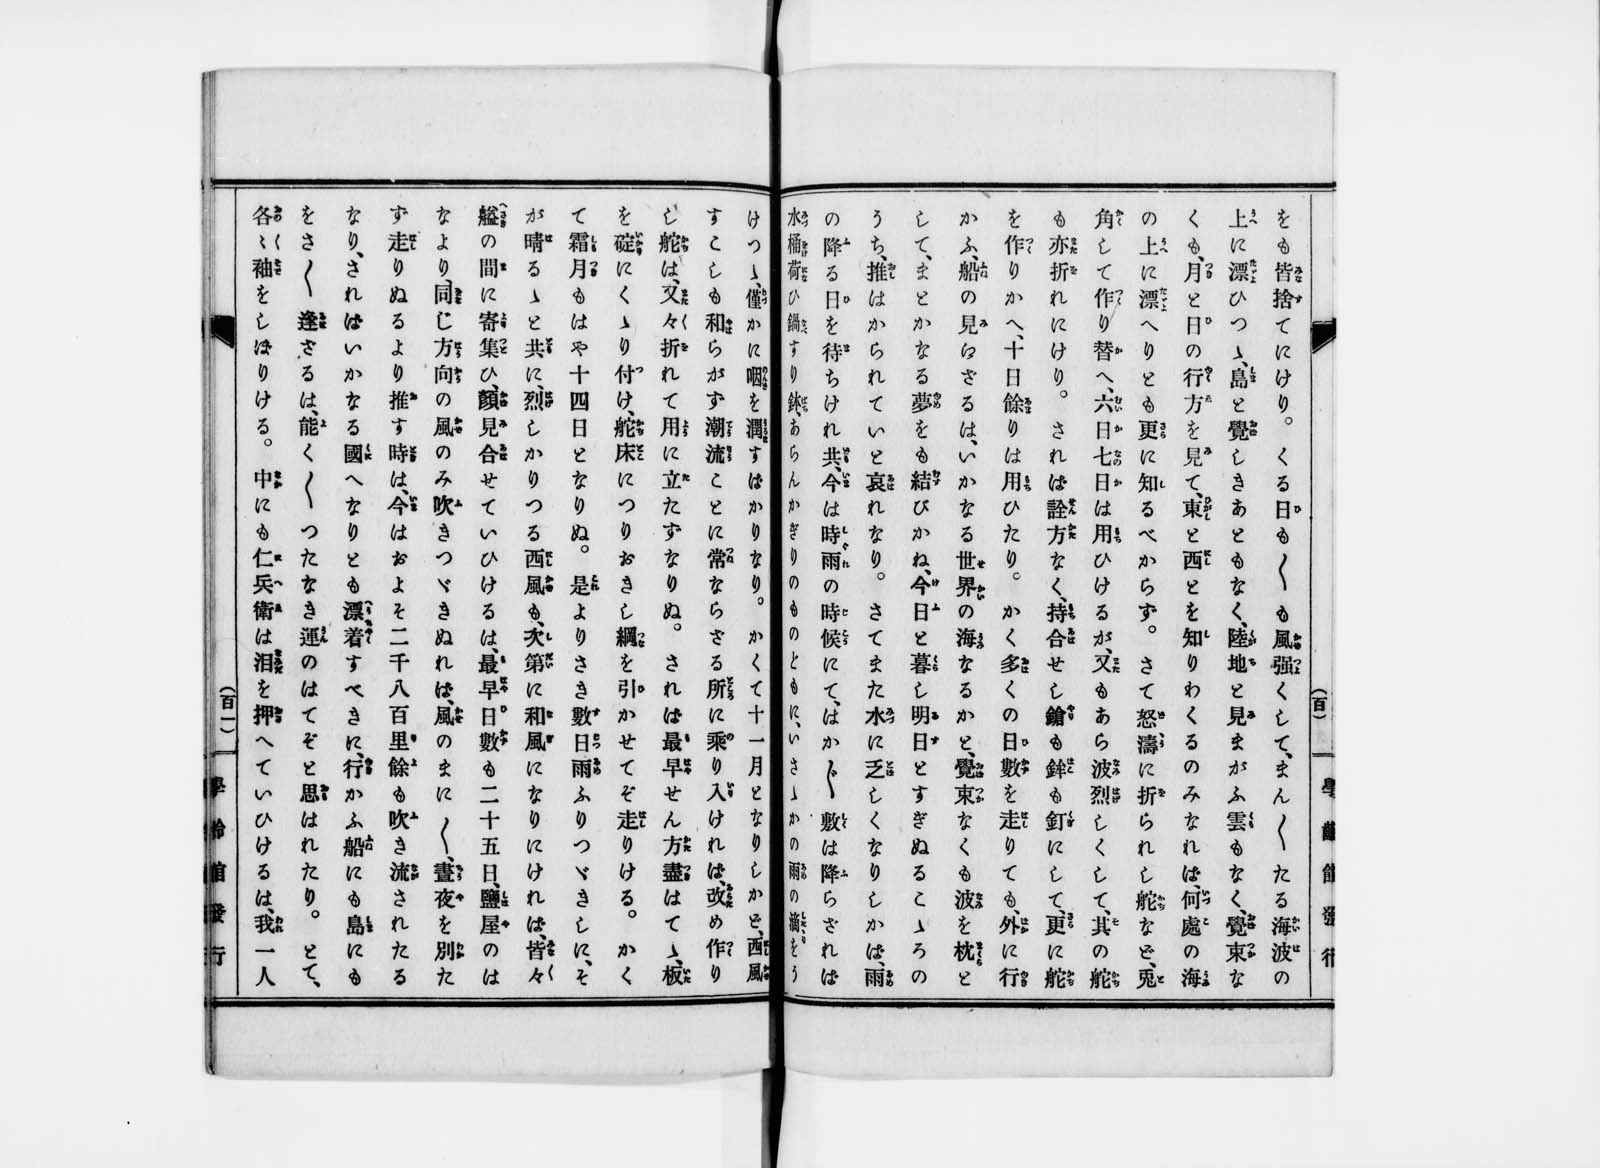 をも皆捨てにけり。くる日も〱も風强くして、まん〱たる海波の
上に漂ひつゝ、島と覺しきあともなく、陸地と見まがふ雲もなく、覺束な
くも、月と日の行方を見て、東と西とを知りわくるのみなれば、何處の海
の上に漂へりとも更に知るべからず。さて怒濤に折られし舵など、兎
角して作り替へ、六日七日は用ひけるが、又もあら波烈しくして、其の舵
も亦折れにけり。されば詮方なく、持合せし鎗も鉾も釘にして、更に舵
を作りかへ、十日餘りは用ひたり。かく多くの日數を走りても、外に行
かふ、船の見はざるは、いかなる世界の海なるかと、覺束なくも波を枕と
して、まとかなる夢をも結びかね、今日と暮し明日とすぎぬるこゝろの
うち、推はかられていと哀れなり。さてまた水に乏しくなりしかば、雨
の降る日を待ちけれ共、今は時雨の時候にて、はか〲敷は降らざれば
水桶荷ひ鍋すり鉢、あらんかぎりのものどもに、いさゝかの雨の滴をう
けつゝ、僅かに咽を潤すばかりなり。かくて十一月となりしかど、西風
すこしも和らがず潮流ことに常ならざる所に乘り入ければ、改め作り
し舵は、又々折れて用に立たずなりぬ。されば最早せん方盡はてゝ、板
を碇にくゝり付け、舵床につりおきし綱を引かせてぞ走りける。かく
て霜月もはや十四日となりぬ。是よりさき數日雨ふりつゞきしに、そ
が晴るゝと共に、烈しかりつる西風も、次第に和風になりにければ、皆々
艗の間に寄集ひ、顏見合せていひけるは、最早日數も二十五日、鹽屋のは
なより、同じ方向の風のみ吹きつゞきぬれば、風のまに〱、晝夜を別た
ず走りぬるより推す時は、今はおよそ二千八百里餘も吹き流されたる
なり、さればいかなる國へなりとも漂着すべきに、行かふ船にも島にも
をさ〱逢ざるは、能く〱つたなき運のはてぞと思はれたり。とて、
各〻袖をしぼりける。中にも仁兵衛は泪を押へていひけるは、我一人
(百)
學齡館發行
(百一)
學齡館發行